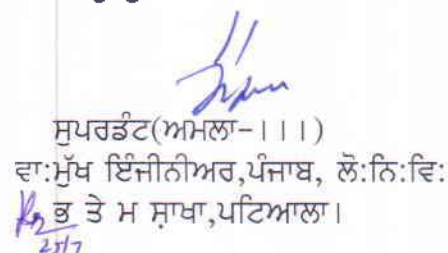 ਸੁਪਰਡੰਟ(ਅਮਲਾ-।।।)
ਵਾ:ਮੁੱਖ ਇੰਜੀਨੀਅਰ,ਪੰਜਾਬ, ਲੋ:ਨਿ:ਵਿ:
ਭ ਤੇ ਮ ਸ਼ਾਖਾ,ਪਟਿਆਲਾ।
25/7